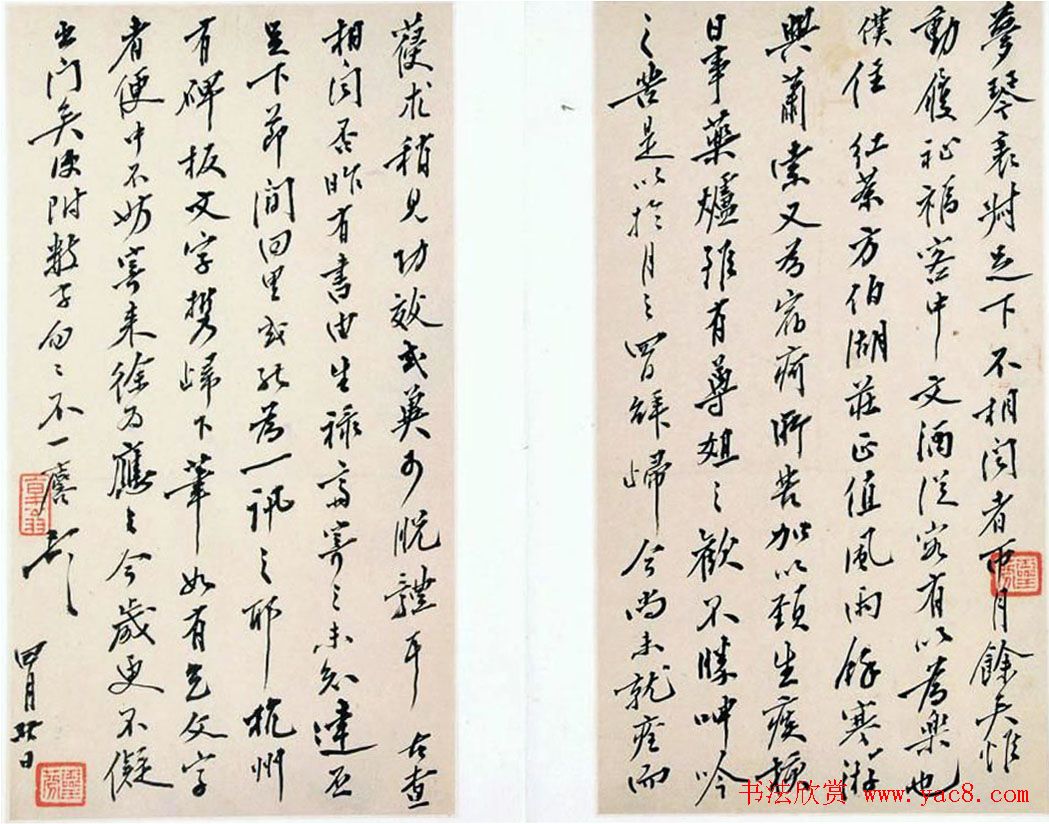 夢琴襄尉足下不相闻者兩月餘矣惟
動履祉福客中文酒従容有以為樂也
僕住紅茶方伯湖莊正值風雨餘寒游
興蕭索又為宿疴所苦加以頚生痰核
日事藥爐雖有尊俎之歡不勝呻吟
之苦是以於月之四日歸今尚未就痊而
求稍見功效或異於脱體耳
相闻否昨有書由生禄斋寄之未知達否
足下節間回里或能為一訊之耶杭州
有碑板文字携歸下筆如有乞文字
者便中不妨寄来徐為應之今歲更不儗
出门矣便附數字匆之不一
四月廿日
书法欣赏 www.yac8.com